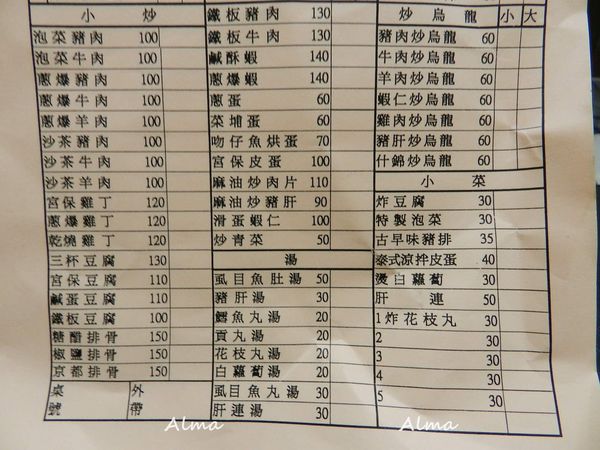 小炒
泡菜豬肉 100
泡菜牛肉 100
蔥爆豬肉 100
蔥爆牛肉 100
蔥爆羊肉 100
沙茶豬肉 100
沙茶牛肉 100
沙茶羊肉 100
宮保雞丁 120
蔥爆雞丁 120
乾燒雞丁 120
三杯豆腐 130
宮保豆腐 110
鹹蛋豆腐 110
鐵板豆腐 100
糖醋排骨 150
椒鹽排骨 150
京都排骨 150
桌號
外帶
鐵板豬肉 130
鐵板牛肉 130
鹹酥蝦 140
蔥爆蝦 140
蔥蛋 60
菜埔蛋 60
吻仔魚烘蛋 70
宮保皮蛋 100
麻油炒肉片 110
麻油炒豬肝 90
滑蛋蝦仁 100
炒青菜 50
湯
虱目魚肚湯 50
豬肝湯 30
鱈魚丸湯 20
貢丸湯 20
花枝丸湯 20
白蘿蔔湯 20
虱目魚丸湯 30
肝連湯 30
炒烏龍 小 大
豬肉炒烏龍 60
牛肉炒烏龍 60
羊肉炒烏龍 60
蝦仁炒烏龍 60
雞肉炒烏龍 60
豬肝炒烏龍 60
什錦炒烏龍 60
小菜
炸豆腐 30
特製泡菜 30
古早味豬排 35
泰式涼拌皮蛋 40
燙白蘿蔔 30
肝連 50
1炸花枝丸 30
2 30
3 30
4 30
5 30
Alma
Alma